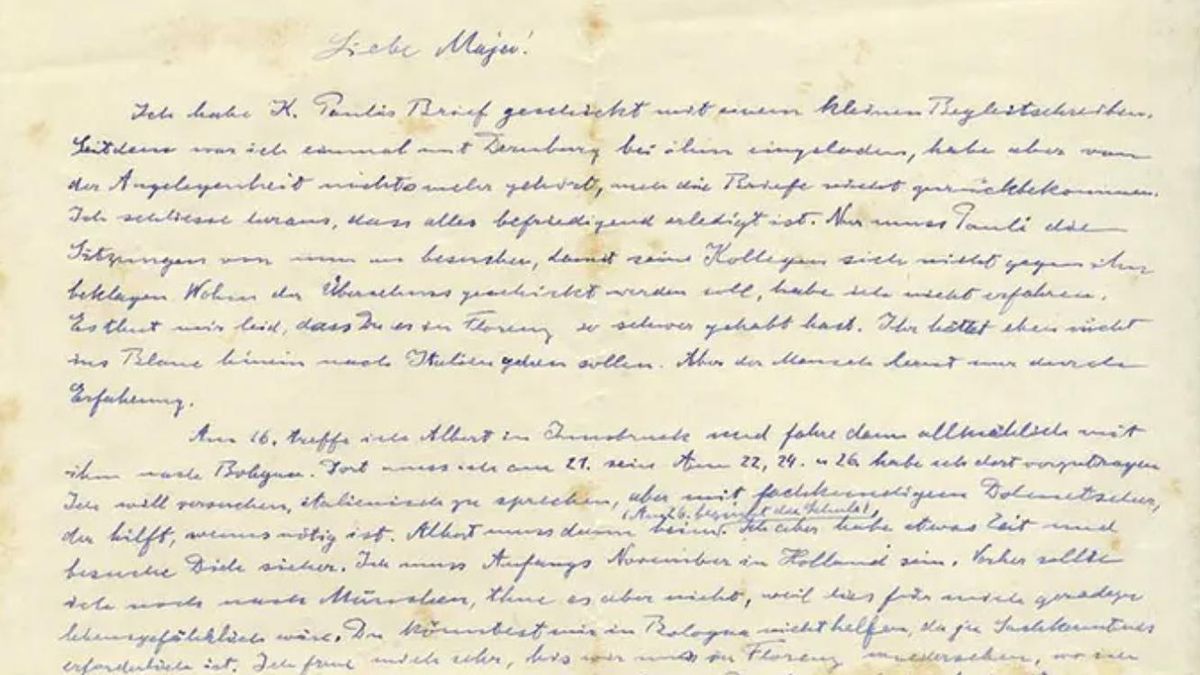 Liebe Maja!
Ich habe K. Paulis Brief geschickt mit einem kleinen Begleitschreiben.
Seitdem war ich einmal mit Dernburg bei ihm eingeladen, habe aber von
der Angelegenheit nichts mehr gehört, auch die Briefe nicht zurückbekommen.
Ich schliesse daraus, dass alles befriedigend erledigt ist. Nur muss Pauli die
Sitzungen von nun an besuchen, damit seine Kollegen sich nicht gegen ihn
beklagen. Wohin der Überschuss geschickt werden soll, habe ich nicht erfahren.
Es thut mir leid, dass Du es in Florenz so schwer gehabt hast. Ihr hättet eben nicht
ins Blaue hinein nach Italien gehen sollen. Aber der Mensch lernt nur durch
Erfahrung.
Am 16. treffe ich Albert in Innsbruck und fahre dann allmählich mit
ihm nach Bologna. Dort muss ich am 21. sein. Am 22, 24. u 26. habe ich dort vorzutragen
Ich will versuchen, italienisch zu sprechen, aber mit fachkundigem Dolmetscher,
(Am 26. beginnt die Schule),
der hilft, wenns nötig ist. Albert muss dann heim. Ich aber habe etwas Zeit und
besuche Dich sicher. Ich muss Anfangs November in Holland sein. Vorher sollte
ich noch nach München, thue es aber nicht, weil dies für mich geradezu
lebensgefährlich wäre. Du könntest mir in Bologna nicht helfen, da ja Sachkenntnis
erforderlich ist. Ich freue mich sehr, bis wir uns in Florenz wiedersehen, wo wir